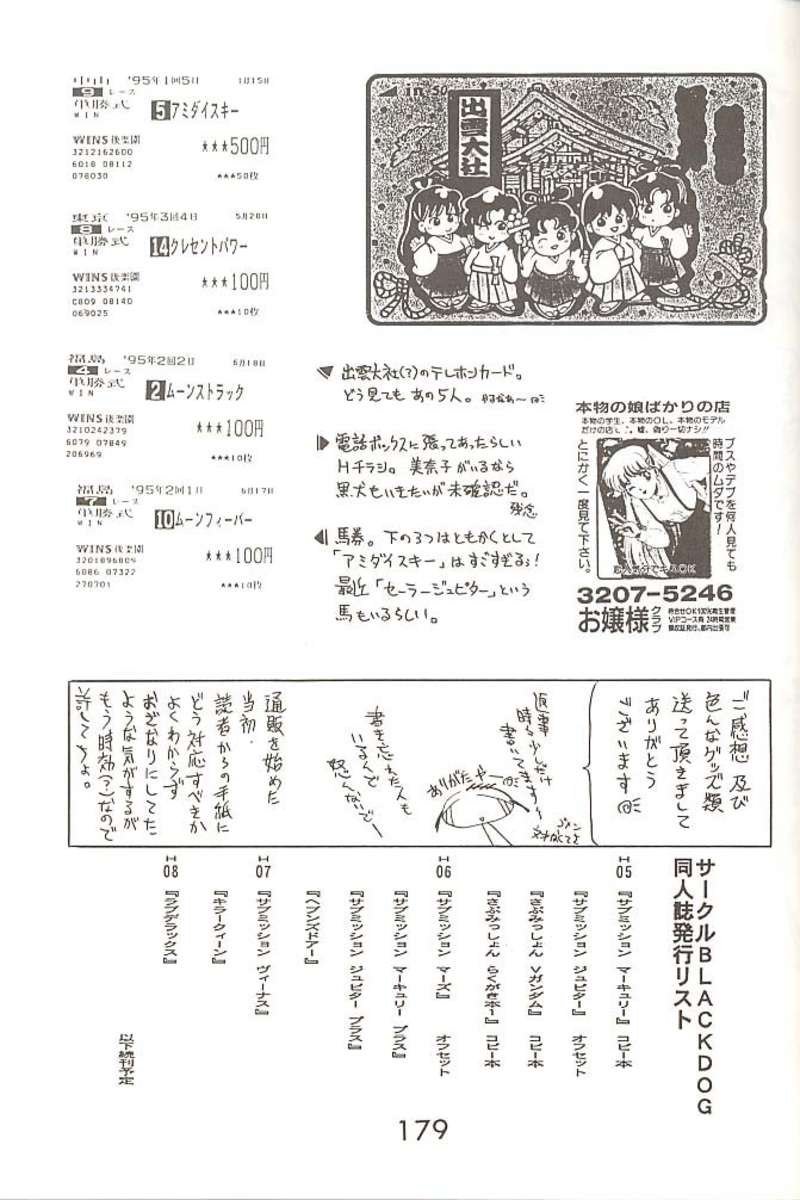 中山 '95年1回5日 1月15日
9 レース
単勝式 5 アミダイスキー
WIN
WINS後楽園 ★★★500円
3212162600
6018 08112
078030 ★★★50枚
東京 '95年3回4日 5月28日
8 レース
単勝式 14 クレセントパワー
WIN
WINS後楽園 ★★★100円
3213334741
C809 08140
069025 ★★★10枚
福島 '95年2回2日 6月18日
4 レース
単勝式 2 ムーンストラック
WIN
WINS後楽園 ★★★100円
3210242379
6079 07849
206969 ★★★10枚
福島 '95年2回1日 6月17日
7 レース
単勝式 10 ムーンフィーバー
WIN
WINS後楽園 ★★★100円
3201896809
6086 07322
270701 ★★★10枚
in 50
出雲大社
出雲大社(?)のテレホンカード。
どう見てもあの5人。
電話ボックスに張ってあったらしい
Hチラシ。美奈子がいるなら
黒犬もいきたいが未確認だ。
残念
馬券。下の3つはともかくとして
「アミダイスキー」はすごすぎるぅ!
最近「セーラージュピター」という
馬もいるらしい。
本物の娘ばかりの店
本物の学生、本物のOL、本物のモデル
だけの店です。嘘、偽り一切ナシ!!
ブスやデブを何人見ても
時間のムダです!
とにかく一度見て下さい。
3207-5246
お嬢様クラブ
待合せOK100%衛生管理
VIPコース有 24時間営業
領収証発行、都内出張可
ご感想 及び
色んなグッズ類
送って頂きまして
ありがとう
ございます
返事
時々少しだけ
書いてます〜
ありがたや〜
書き忘れた人も
いるんで
怒んないで〜
通販を始めた
当初、
読者からの手紙に
どう対応すべきか
よくわからず
おざなりにしてた
ような気がするが
もう時効(?)なので
許してちょ。
サークルBLACKDOG
同人誌発行リスト
H05 『サブミッション マーキュリー』 コピー本
『サブミッション ジュピター』 オフセット
『さぶみっしょん Vガンダム』 コピー本
『さぶみっしょん らくがきホー』 コピー本
H06 『サブミッション マーズ』 オフセット
『サブミッション マーキュリー プラス』
『サブミッション ジュピター プラス』
『ヘブンズドアー』
H07 『サブミッション ヴィーナス』
『キラークィーン』
H08 『ラブデラックス』
以下続刊予定
179